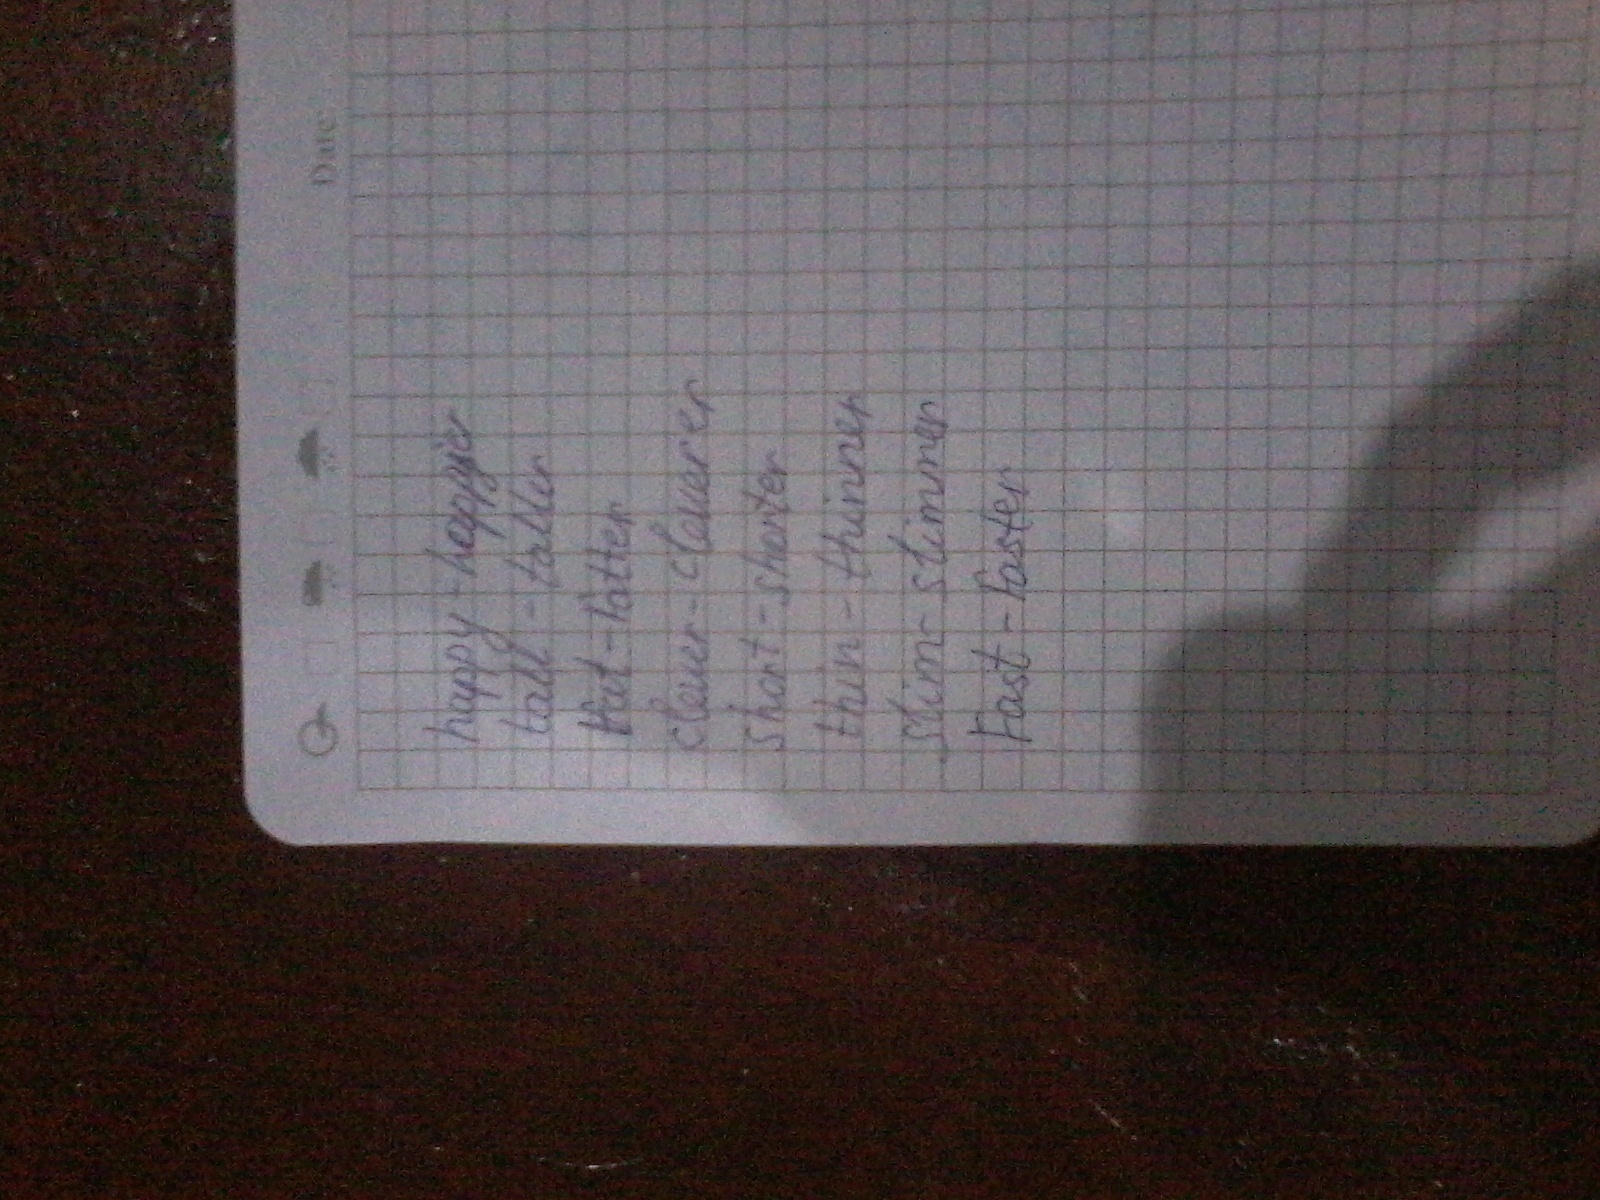 Date
happy - happier
tall - taller
fat - fatter
clever - cleverer
short - shorter
thin - thinner
slim - slimmer
Fast - faster